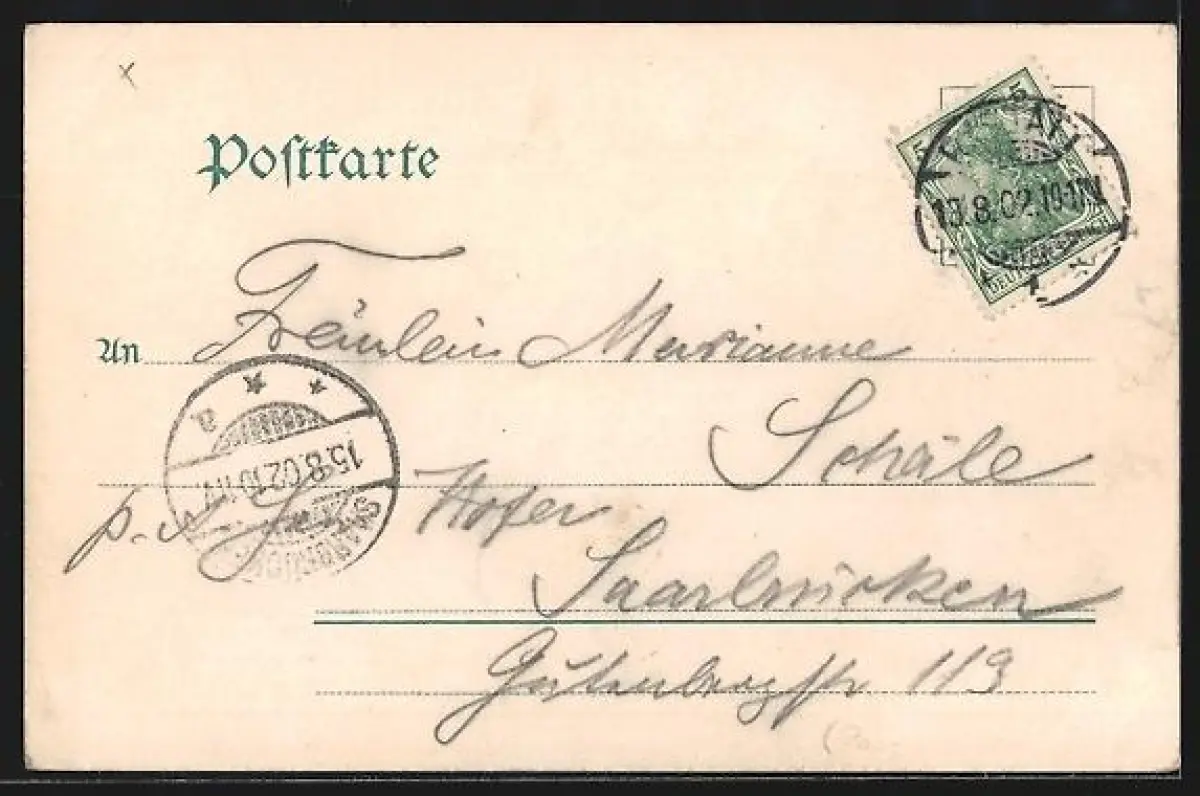 Postkarte
5 5
13.8.02.10-11V.
DEUTSCHES REICH
An Fräulein Marianne
Schäle
15.8.02.10-11V.
p. A. Hofer
Saarbrücken
Gutenbergstr 113